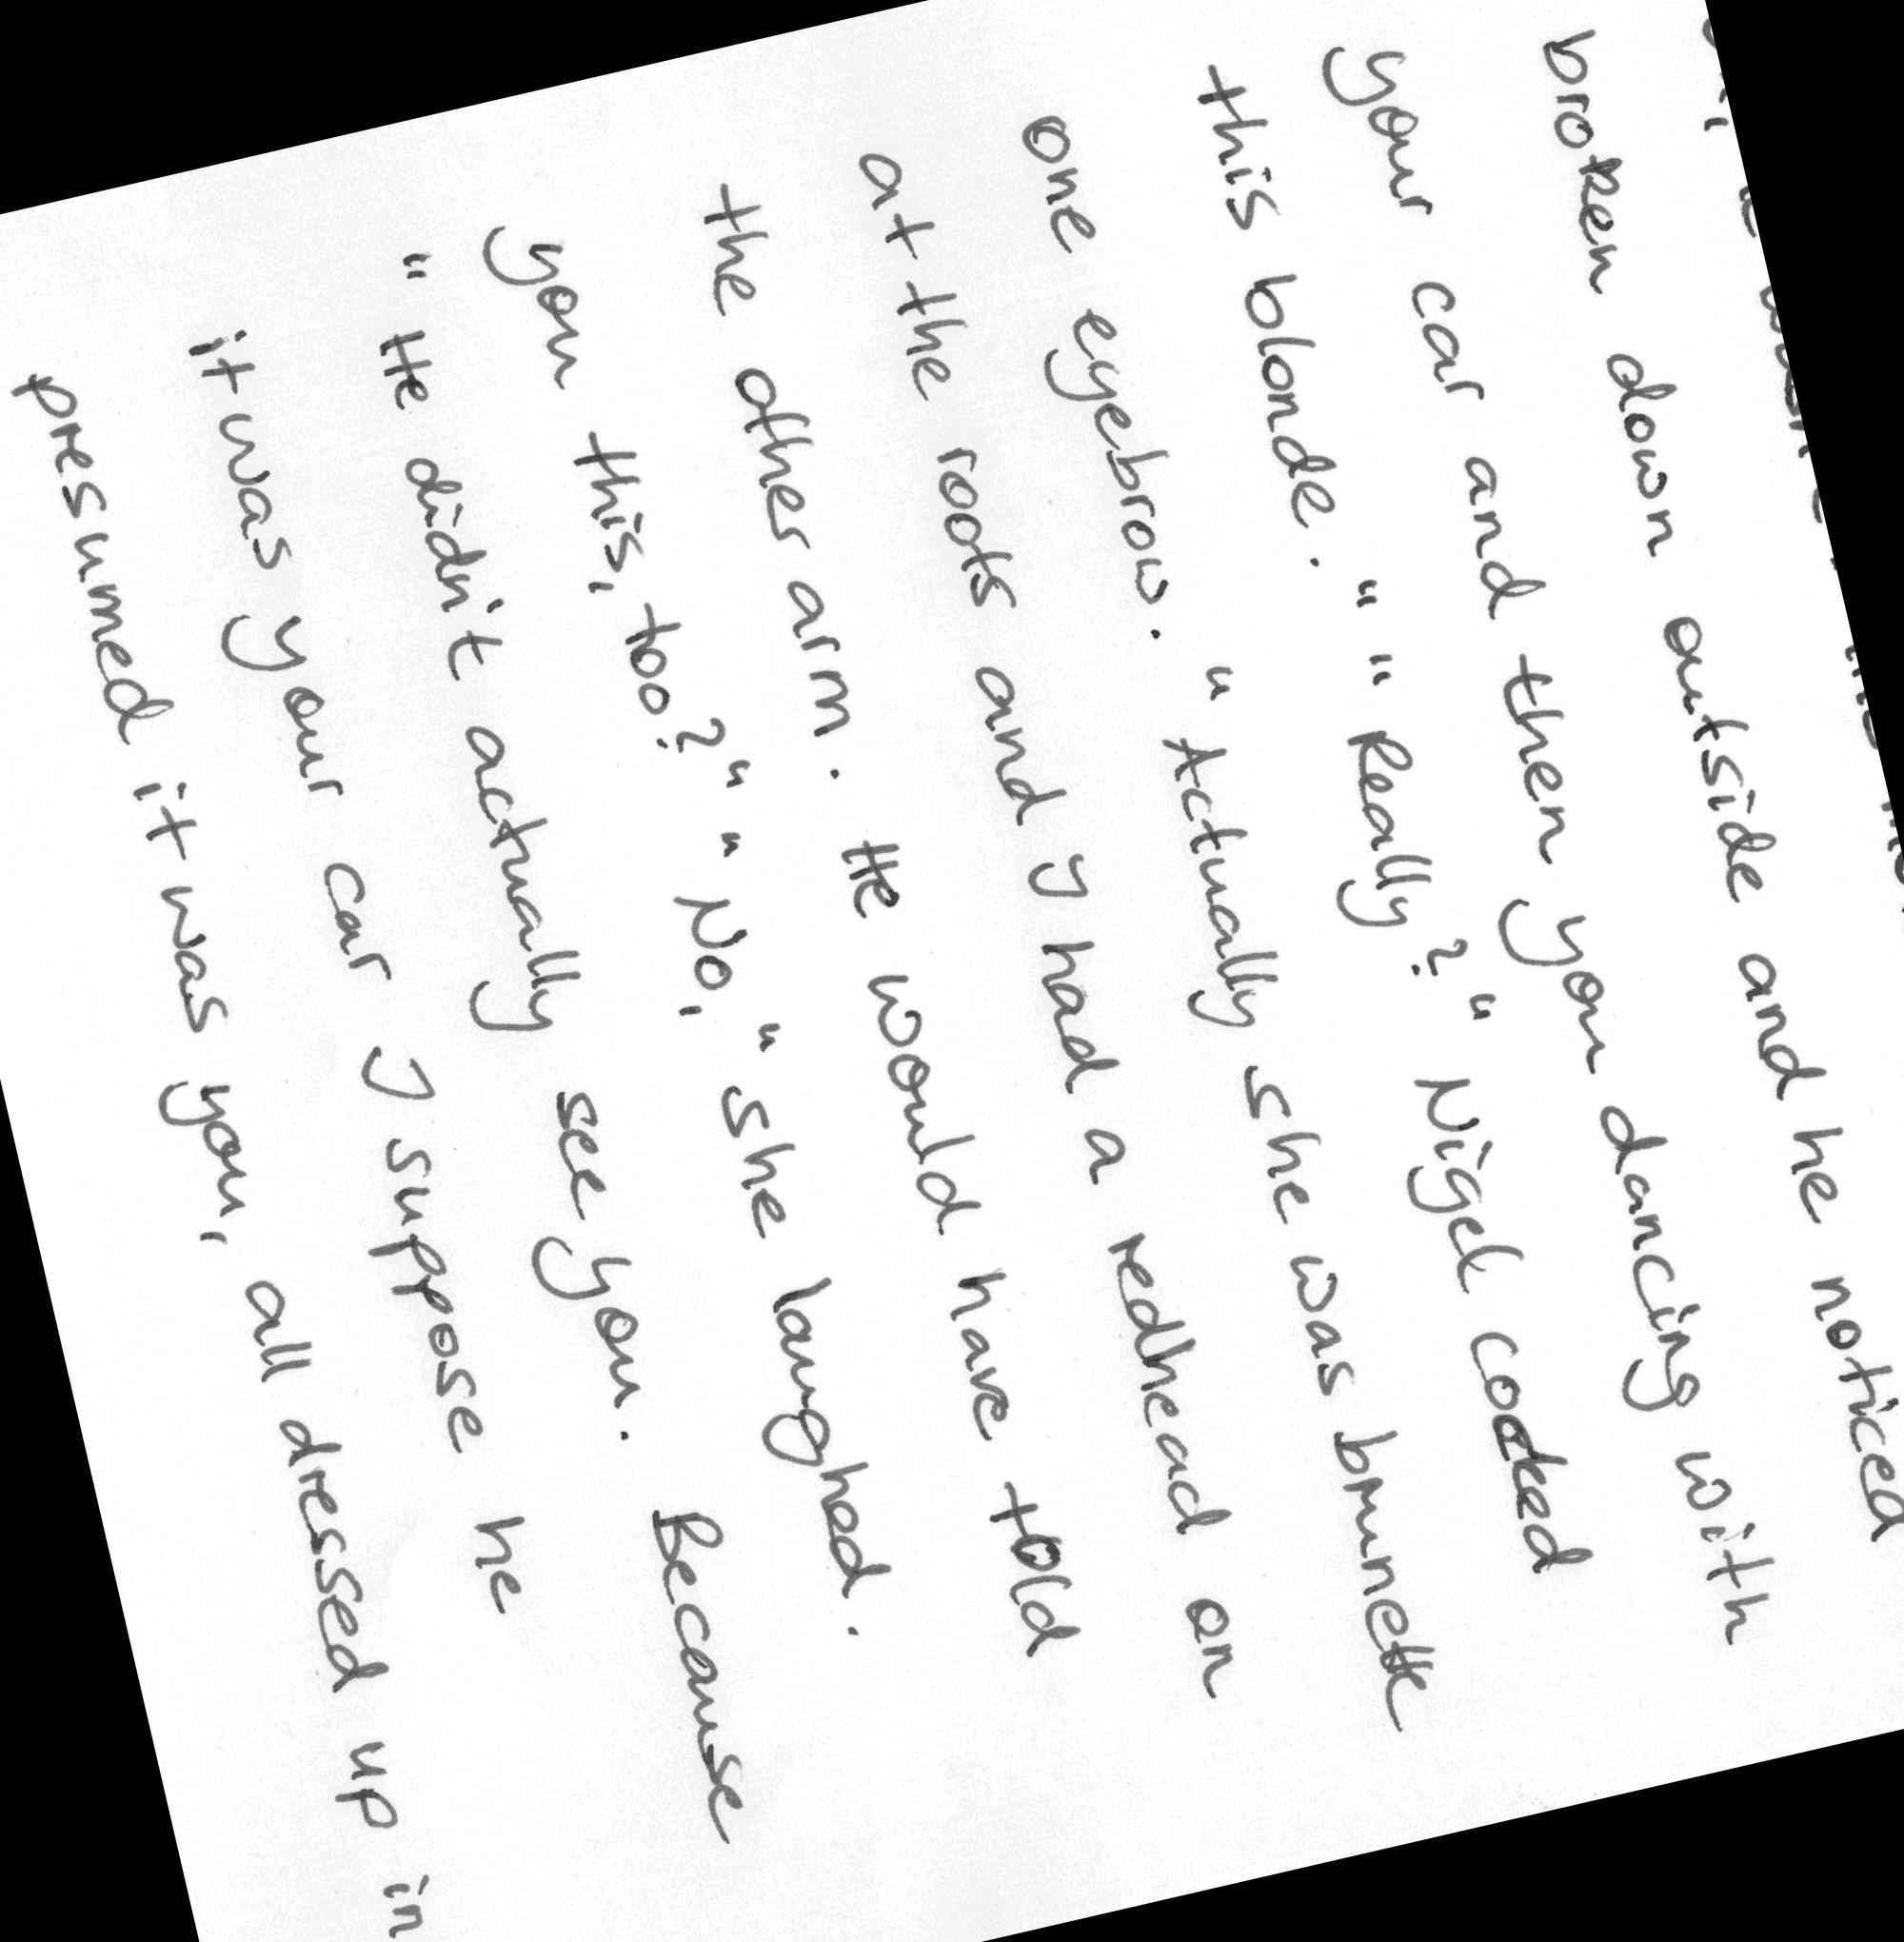 broken down outside and he noticed
your car and then you dancing with
this blonde." "Really?" Nigel cocked
one eyebrow. "Actually she was brunette
at the roots and I had a redhead on
the other arm. He would have told
you this, too?" "No," she laughed.
"He didn't actually see you. Because
it was your car I suppose he
presumed it was you, all dressed up in